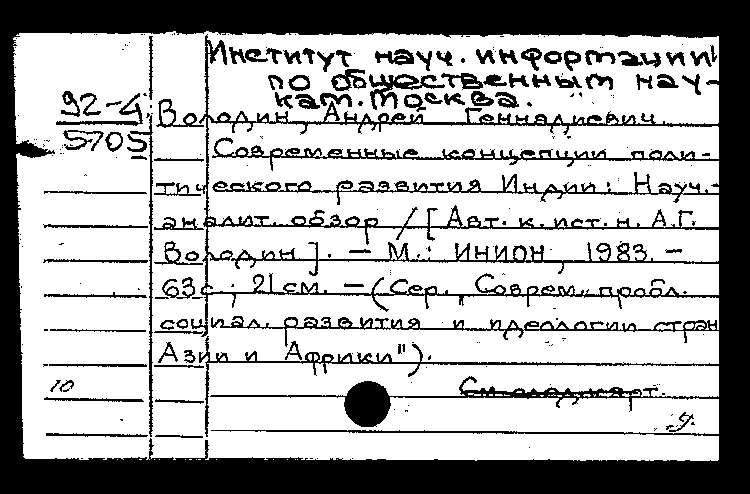 Институт науч. информации
по общественным нау-
кам. Москва.
92-4
5705
Володин, Андрей Геннадиевич.
Современные концепции поли-
тического развития Индии: Науч.-
аналит. обзор / [Авт. к. ист. н. А.Г.
Володин]. — М.: ИНИОН, 1983. —
63с.; 21см. — (Сер. „Соврем. пробл.
социал. развития и идеологии стран
Азии и Африки").
10